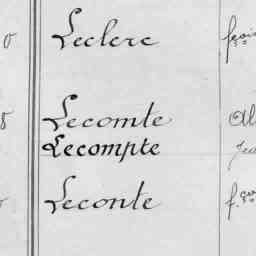 Leclerc
Lecomte
Lecompte
Leconte